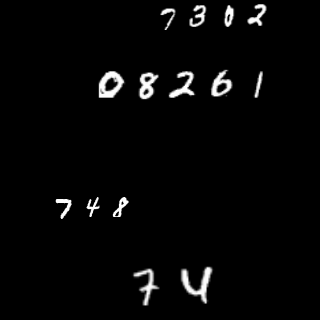 7302
08261
748
74